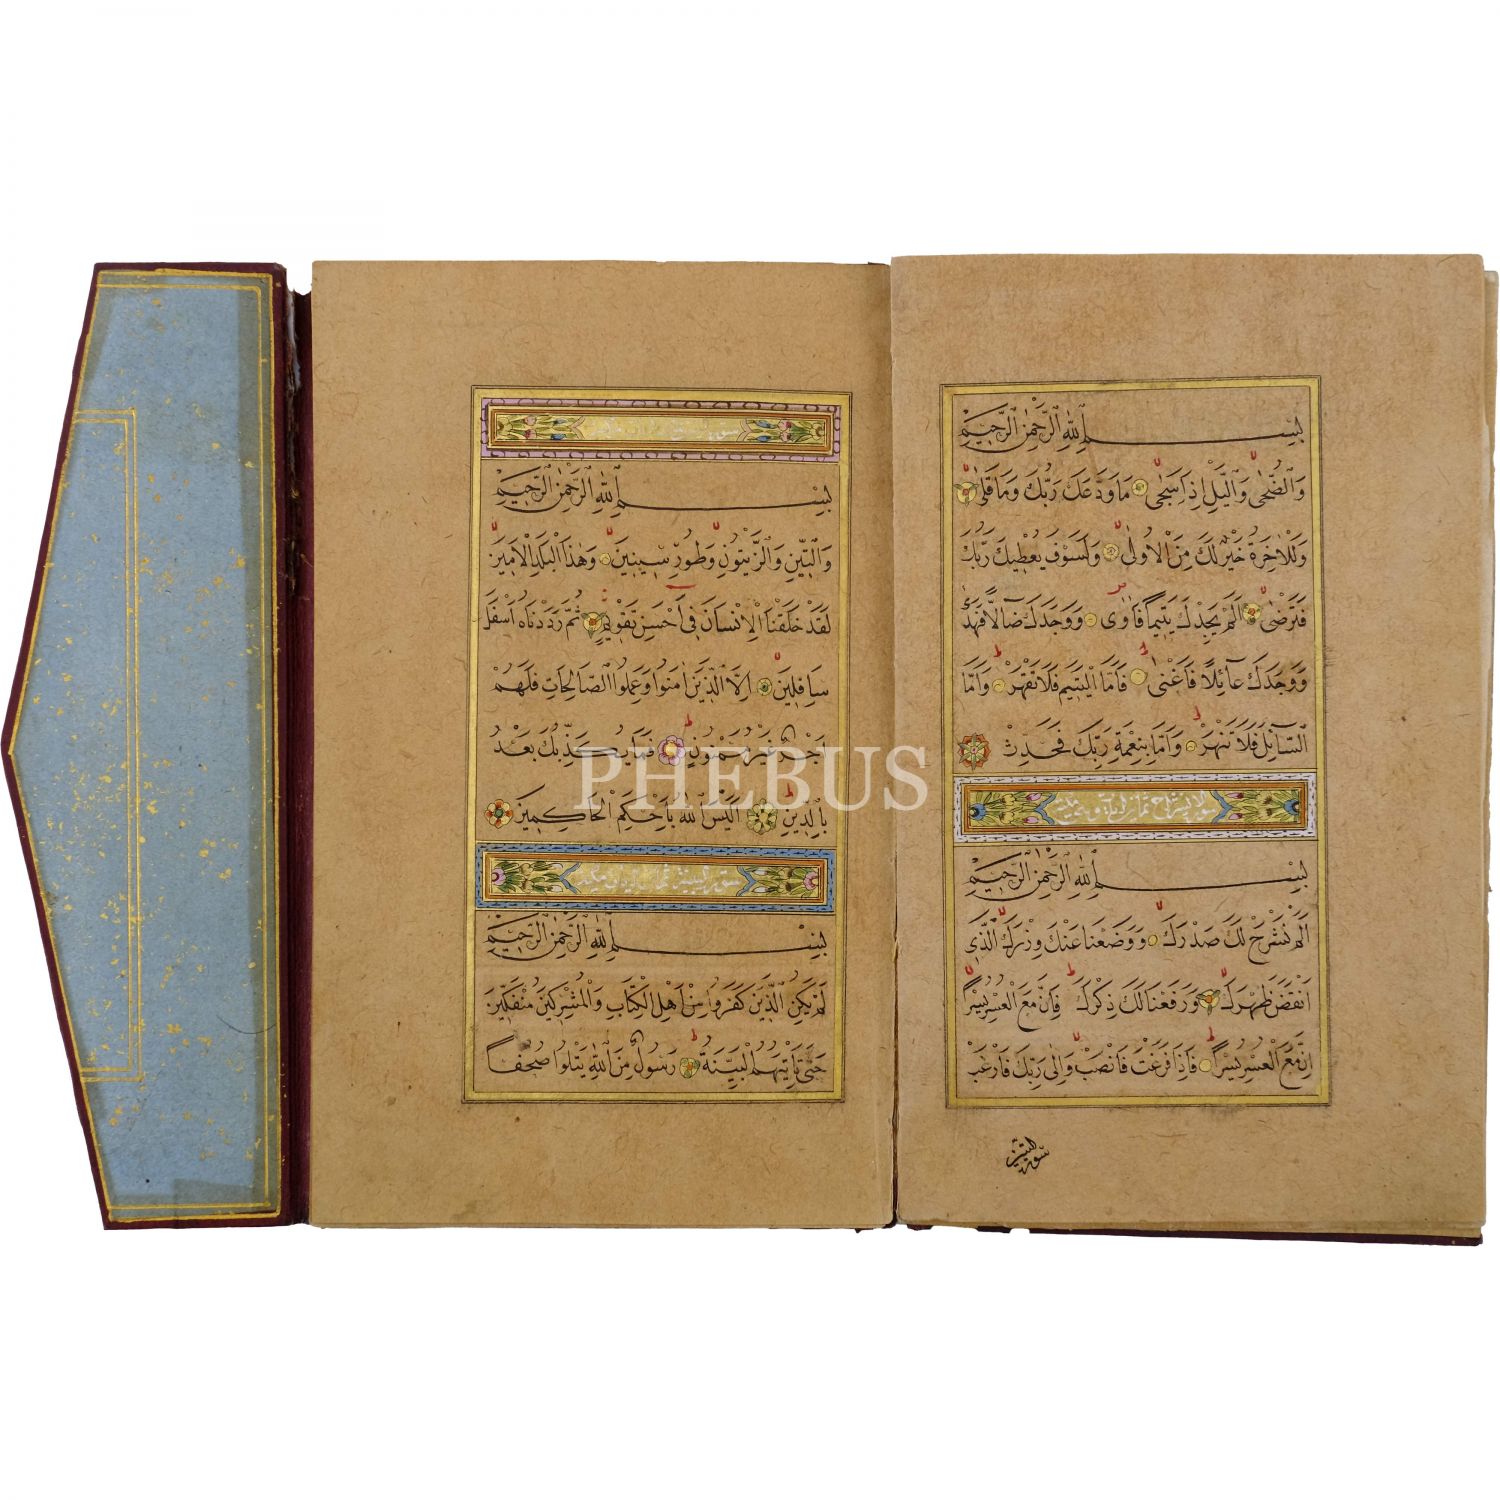 بِسْمِ اللّٰهِ الرَّحْمٰنِ الرَّحِيمِ
وَالضُّحٰى وَالَّيْلِ اِذَا سَجٰى مَا وَدَّعَكَ رَبُّكَ وَمَا قَلٰى
وَلَلْاٰخِرَةُ خَيْرٌ لَكَ مِنَ الْاُولٰى وَلَسَوْفَ يُعْطِيكَ رَبُّكَ
فَتَرْضٰى اَلَمْ يَجِدْكَ يَتِيمًا فَاٰوٰى وَوَجَدَكَ ضَٓالًّا فَهَدٰى
وَوَجَدَكَ عَٓائِلًا فَاَغْنٰى فَاَمَّا الْيَتِيمَ فَلَا تَقْهَرْ وَاَمَّا
السَّٓائِلَ فَلَا تَنْهَرْ وَاَمَّا بِنِعْمَةِ رَبِّكَ فَحَدِّثْ
بِسْمِ اللّٰهِ الرَّحْمٰنِ الرَّحِيمِ
اَلَمْ نَشْرَحْ لَكَ صَدْرَكَ وَوَضَعْنَا عَنْكَ وِزْرَكَ الَّذِى
اَنْقَضَ ظَهْرَكَ وَرَفَعْنَا لَكَ ذِكْرَكَ فَاِنَّ مَعَ الْعُسْرِ يُسْرًا
اِنَّ مَعَ الْعُسْرِ يُسْرًا فَاِذَا فَرَغْتَ فَانْصَبْ وَاِلٰى رَبِّكَ فَارْغَبْ
سورة التين
بِسْمِ اللّٰهِ الرَّحْمٰنِ الرَّحِيمِ
وَالتِّينِ وَالزَّيْتُونِ وَطُورِ سِينِينَ وَهٰذَا الْبَلَدِ الْاَمِينِ
لَقَدْ خَلَقْنَا الْاِنْسَانَ فِى اَحْسَنِ تَقْوِيمٍ ثُمَّ رَدَدْنَاهُ اَسْفَلَ
سَافِلِينَ اِلَّا الَّذِينَ اٰمَنُوا وَعَمِلُوا الصَّالِحَاتِ فَلَهُمْ
اَجْرٌ غَيْرُ مَمْنُونٍ فَمَا يُكَذِّبُكَ بَعْدُ
بِالدِّينِ اَلَيْسَ اللّٰهُ بِاَحْكَمِ الْحَاكِمِينَ
بِسْمِ اللّٰهِ الرَّحْمٰنِ الرَّحِيمِ
لَمْ يَكُنِ الَّذِينَ كَفَرُوا مِنْ اَهْلِ الْكِتَابِ وَالْمُشْرِكِينَ مُنْفَكِّينَ
حَتّٰى تَاْتِيَهُمُ الْبَيِّنَةُ رَسُولٌ مِنَ اللّٰهِ يَتْلُوا صُحُفًا
PHEBUS